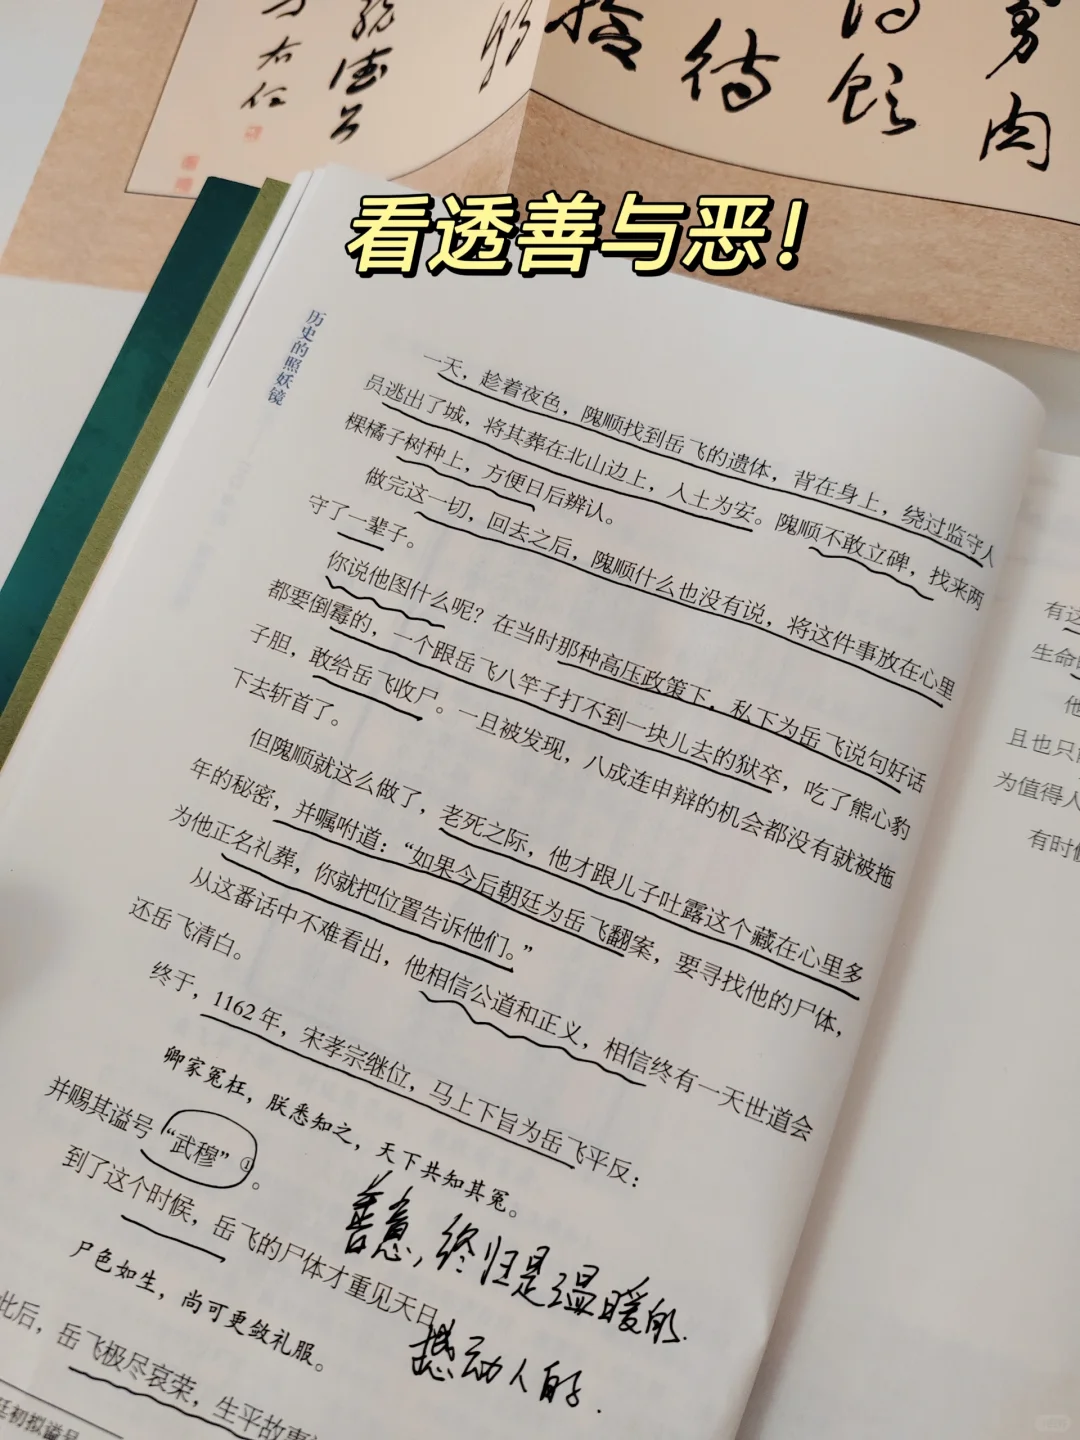 看透善与恶！
历史的照妖镜
一天，趁着夜色，隗顺找到岳飞的遗体，背在身上，绕过监守人
员逃出了城，将其葬在北山边上，入土为安。隗顺不敢立碑，找来两
棵橘子树种上，方便日后辨认。
做完这一切，回去之后，隗顺什么也没有说，将这件事放在心里
守了一辈子。
你说他图什么呢？在当时那种高压政策下，私下为岳飞说句好话
都要倒霉的，一个跟岳飞八竿子打不到一块儿去的狱卒，吃了熊心豹
子胆，敢给岳飞收尸。一旦被发现，八成连申辩的机会都没有就被拖
下去斩首了。
但隗顺就这么做了，老死之际，他才跟儿子吐露这个藏在心里多
年的秘密，并嘱咐道：“如果今后朝廷为岳飞翻案，要寻找他的尸体，
为他正名礼葬，你就把位置告诉他们。”
从这番话中不难看出，他相信公道和正义，相信终有一天世道会
还岳飞清白。
终于，1162年，宋孝宗继位，马上下旨为岳飞平反：
卿家冤枉，朕悉知之，天下共知其冤。
并赐其谥号“武穆”①。
到了这个时候，岳飞的尸体才重见天日
尸色如生，尚可更敛礼服。
此后，岳飞极尽哀荣，生平故事
廷初拟谥号
善意，终归是温暖的.
撼动人的.
有这
生命
他
且也只
为值得人
有时
右任
待
肉